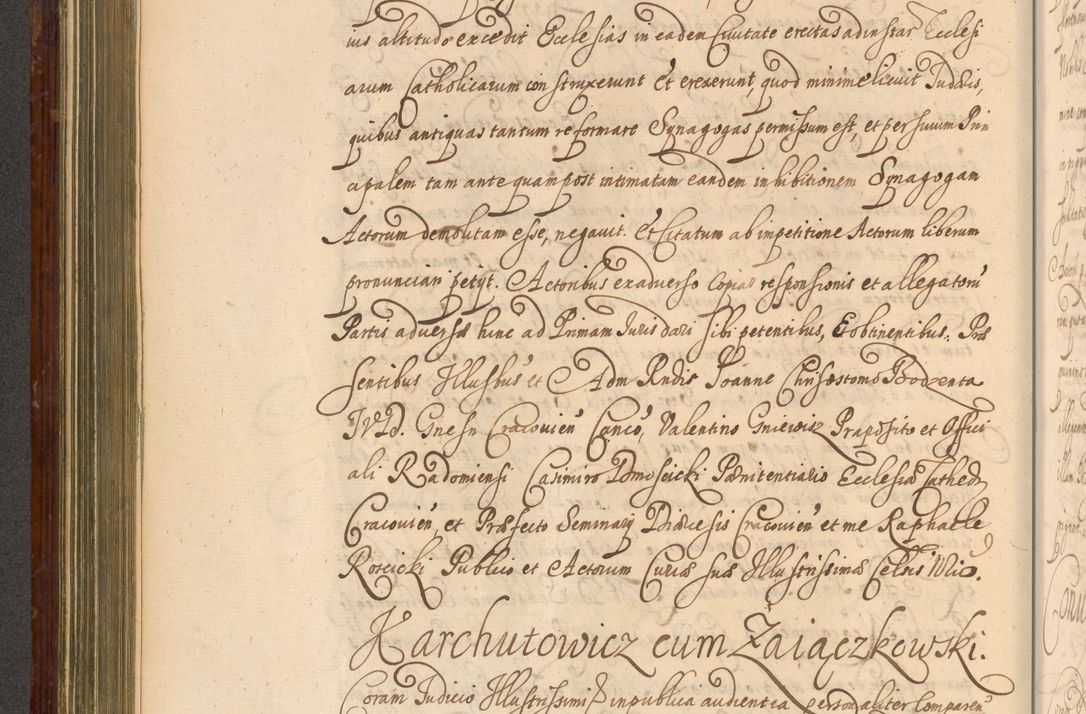 ius altitudo excedit Ecclesias in eadem Civitate erectas ad instar Ecclesi
arum Catholicarum construxerunt et erexerunt, quod minime licuit Judæis,
quibus antiquas tantum reformare Synagogas permissum est, et per suum Prin
cipalem tam ante quam post intimatam eandem inhibitionem Synagogam
Actorum demolitam esse, negavit. Et Citatum ab impetitione Actorum liberum
pronunciari petyt. Actoribus ex adverso copias responsionis et allegatorũ
Partis adversæ hinc ad Primam Juris dari sibi petentibus, et obtinentibus. Præ
sentibus Illusbus et Adm Rndis Joanne Chrisostomo Bodzenta
JVD. Gnesn Cracovien Canco, Valentino Gniewisz Præposito et Offici
ali Radomiensi Casimiro Domoscicki Pænitentiario Ecclesiæ Cathed
Cracovien, et Præfecto Seminarÿ Diæcesis Cracovien et me Raphaele
Roscicki Publico et Actorum Curiæ suæ Illustrissimæ Celsnis
Karchutowicz cum Zaiączkowski.
Coram Judicio Illustrissimi in publica audientia personaliter Comparen